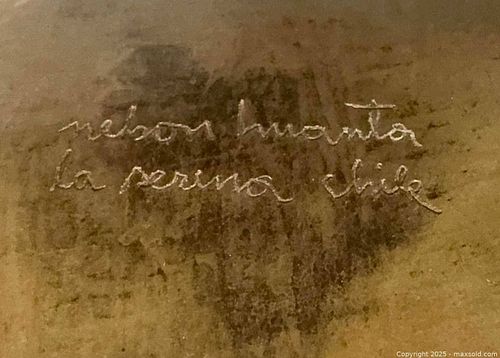 nelson huanta
la serena chile
Copyright 2025 - maxsold.com